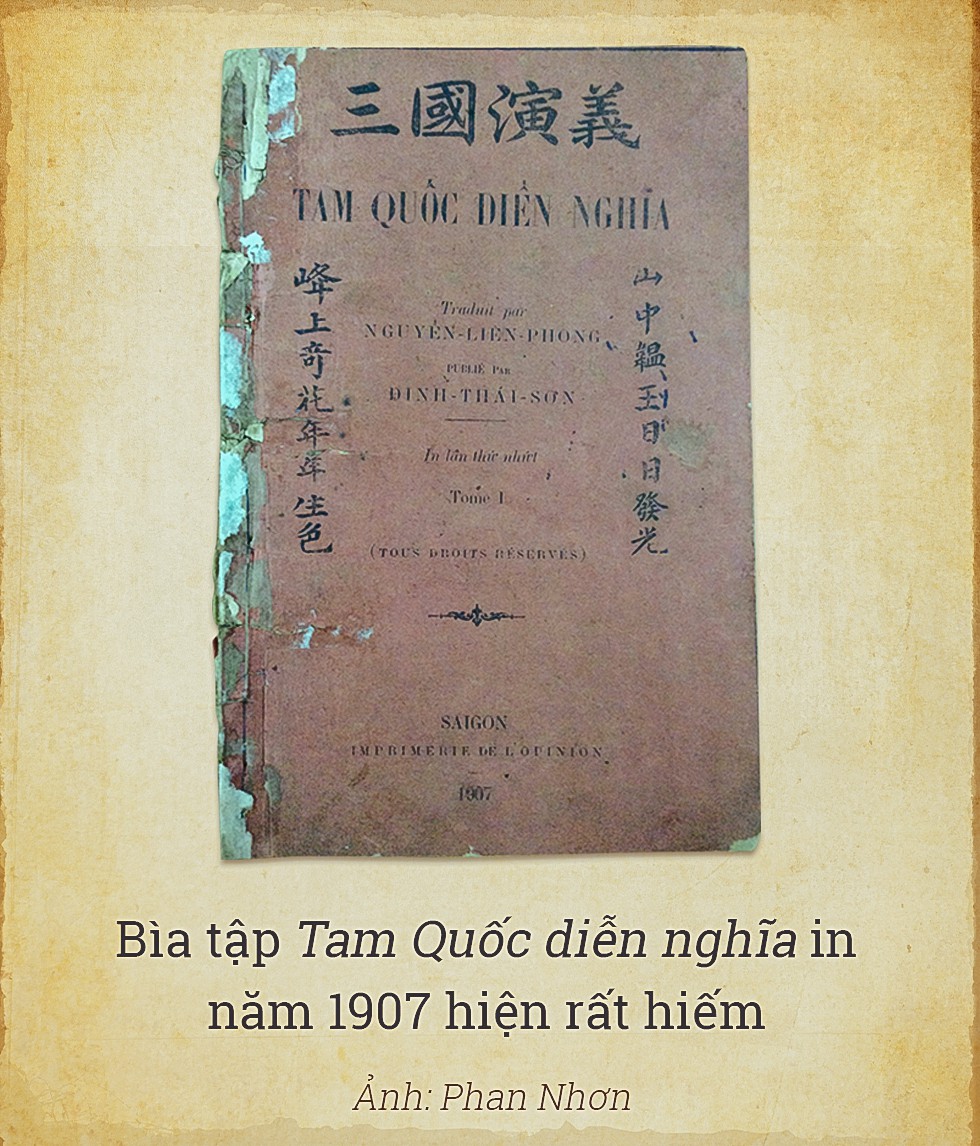 三國演義
TAM QUỐC DIỂN NGHĨA
山中韞玉日日發光
峰上奇花年年生色
Traduit par
NGUYỄN-LIÊN-PHONG
PUBLIÉ PAR
ĐINH-THÁI-SƠN
In lần thứ nhứt
Tome I
(TOUS DROITS RÉSERVÉS)
SAIGON
IMPRIMERIE DE L'OPINION
1907
Bìa tập Tam Quốc diễn nghĩa in
năm 1907 hiện rất hiếm
Ảnh: Phan Nhơn